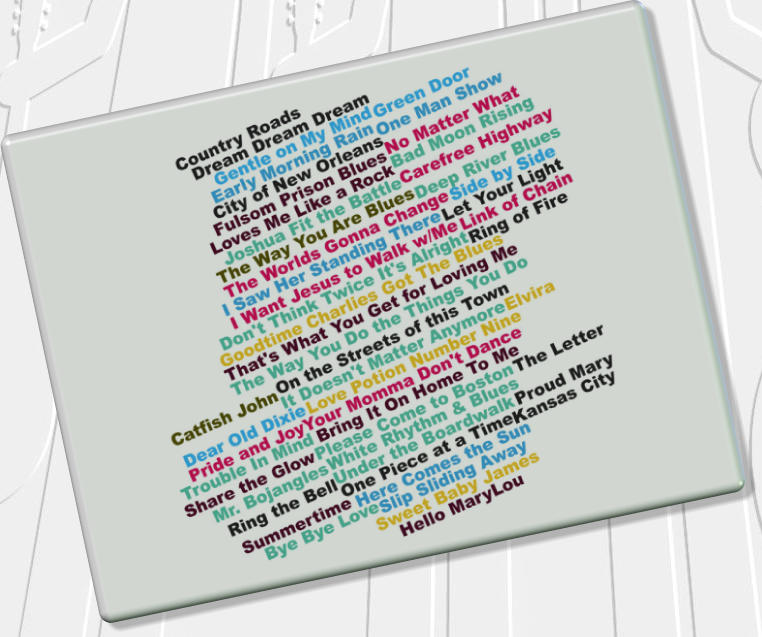 Country Roads
Dream Dream Dream
Gentle on My Mind Green Door
Early Morning Rain One Man Show
City of New Orleans No Matter What
Fulsom Prison Blues Bad Moon Rising
Loves Me Like a Rock Carefree Highway
Joshua Fit the Battle Deep River Blues
The Way You Are Blues Side by Side
The Worlds Gonna Change Let Your Light
I Saw Her Standing There Link of Chain
I Want Jesus to Walk w/Me Ring of Fire
Don't Think Twice It's Alright
Goodtime Charlies Got The Blues
That's What You Get for Loving Me
The Way You Do the Things You Do
On the Streets of this Town Elvira
Catfish John It Doesn't Matter Anymore
Dear Old Dixie Love Potion Number Nine
Pride and Joy Your Momma Don't Dance
Trouble In Mind Bring It On Home To Me The Letter
Share the Glow Please Come to Boston
Mr. Bojangles White Rhythm & Blues Proud Mary
Ring the Bell Under the Boardwalk Kansas City
Summertime One Piece at a Time
Bye Bye Love Here Comes the Sun
Slip Sliding Away
Sweet Baby James
Hello MaryLou